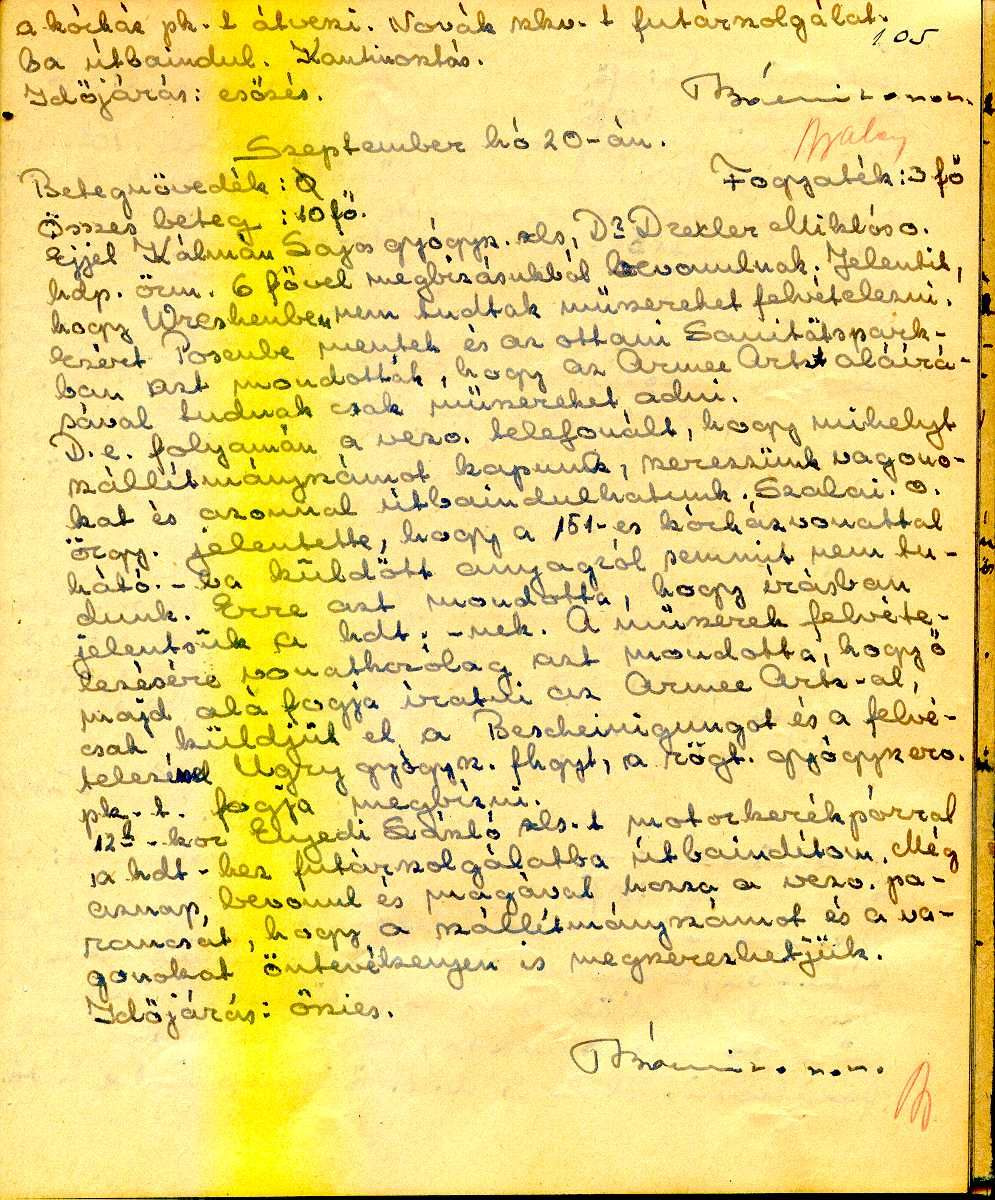 a kórház pk.-t átveszi. Novák szkv.-t futárszolgálat-
105
ba útbaindul. Kantinosztás.
Időjárás: esőzés.
September hó 20-án.
Betegnövedék: 0 Fogyaték: 3 fő
Összes beteg : 10 fő.
Éjjel Kálmán Sajos gyógysz. zls, Dr Drexler Miklós o.
hdp. őrm. 6 fővel megbízásukból bevonulnak. Jelentik,
hogy Wreshenben nem tudtak műszereket felvételezni.
Ezért Posenbe mentek és az ottani Sanitätspark-
ban azt mondották, hogy az Armee Arzt aláírá-
sával tudnak csak műszereket adni.
D. e. folyamán a vezo. telefonált, hogy mihelyt
szállítmányszámot kapunk, szerezzünk vagono-
kat és azonnal útbaindulhatunk. Szalai o.
őrgy. jelentette, hogy a 151-es kórházvonattal
ható.-ba küldött anyagról semmit nem tu-
dunk. Erre azt mondotta, hogy írásban
jelentsük a hdt.-nek. A műszerek felvéte-
lezésére vonatkozólag azt mondotta, hogy ő
majd alá fogja íratni az Armee Arzt-al,
csak küldjük el a Bescheinigungot és a felvé-
telezésnél Ugry gyógysz. fhgyt, a rögt. gyógyszero.
pk-t. fogja megbízni.
12h-kor Enyedi László zls.-t motorkerékpárral
a hdt-hez futárszolgálatba útbaindítom. Még
aznap, bevonul és magával hozza a vezo. pa-
rancsát, hogy a szállítmányszámot és a va-
gonokat öntevékenyen is megszerezhetjük.
Időjárás: őszies.